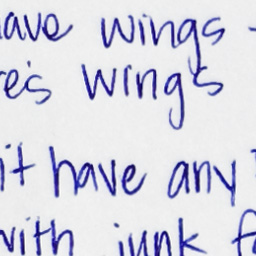 have wings -
re's wing's
it have any?
with junk f